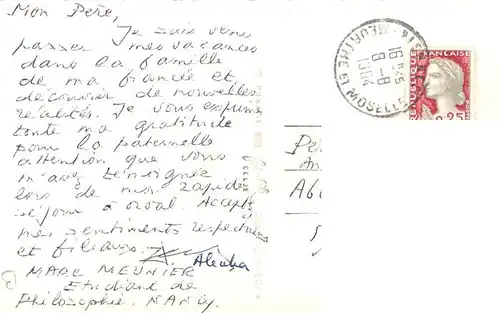 Mon Père,
Je suis venu
passer mes vacances
dans la famille
de ma fiancée et
découvrir de nouvelles
réalités. Je vous exprime
toute ma gratitude
pour la paternelle
attention que vous
m'avez témoignée
lors de mon rapide
séjour à Orval. Acceptez
mes sentiments respectueux
et filiaux.
MARC MEUNIER
Etudiant de
Philosophie. NANCY.
MEURTHE ET MOSELLE
16H45
8-8
1964
FRANÇAISE
0,25